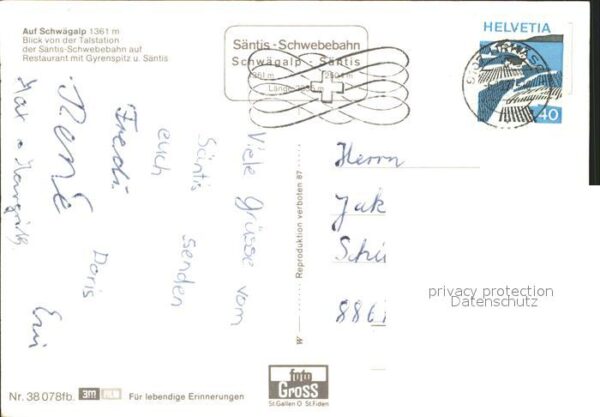 Auf Schwägalp 1361 m
Blick von der Talstation
der Säntis-Schwebebahn auf
Restaurant mit Gyrenspitz u. Säntis
Säntis-Schwebebahn
Schwägalp - Säntis
HELVETIA
40
Viele Grüsse vom
Säntis senden
euch
Fredi
René
Doris
Erni
Max + Margrith
Herrn
Jak
Schü
886
Reproduktion verboten 87
W
privacy protection
Datenschutz
Nr. 38 078fb.
3M
Für lebendige Erinnerungen
foto
GROSS
St.Gallen O. St.Fiden